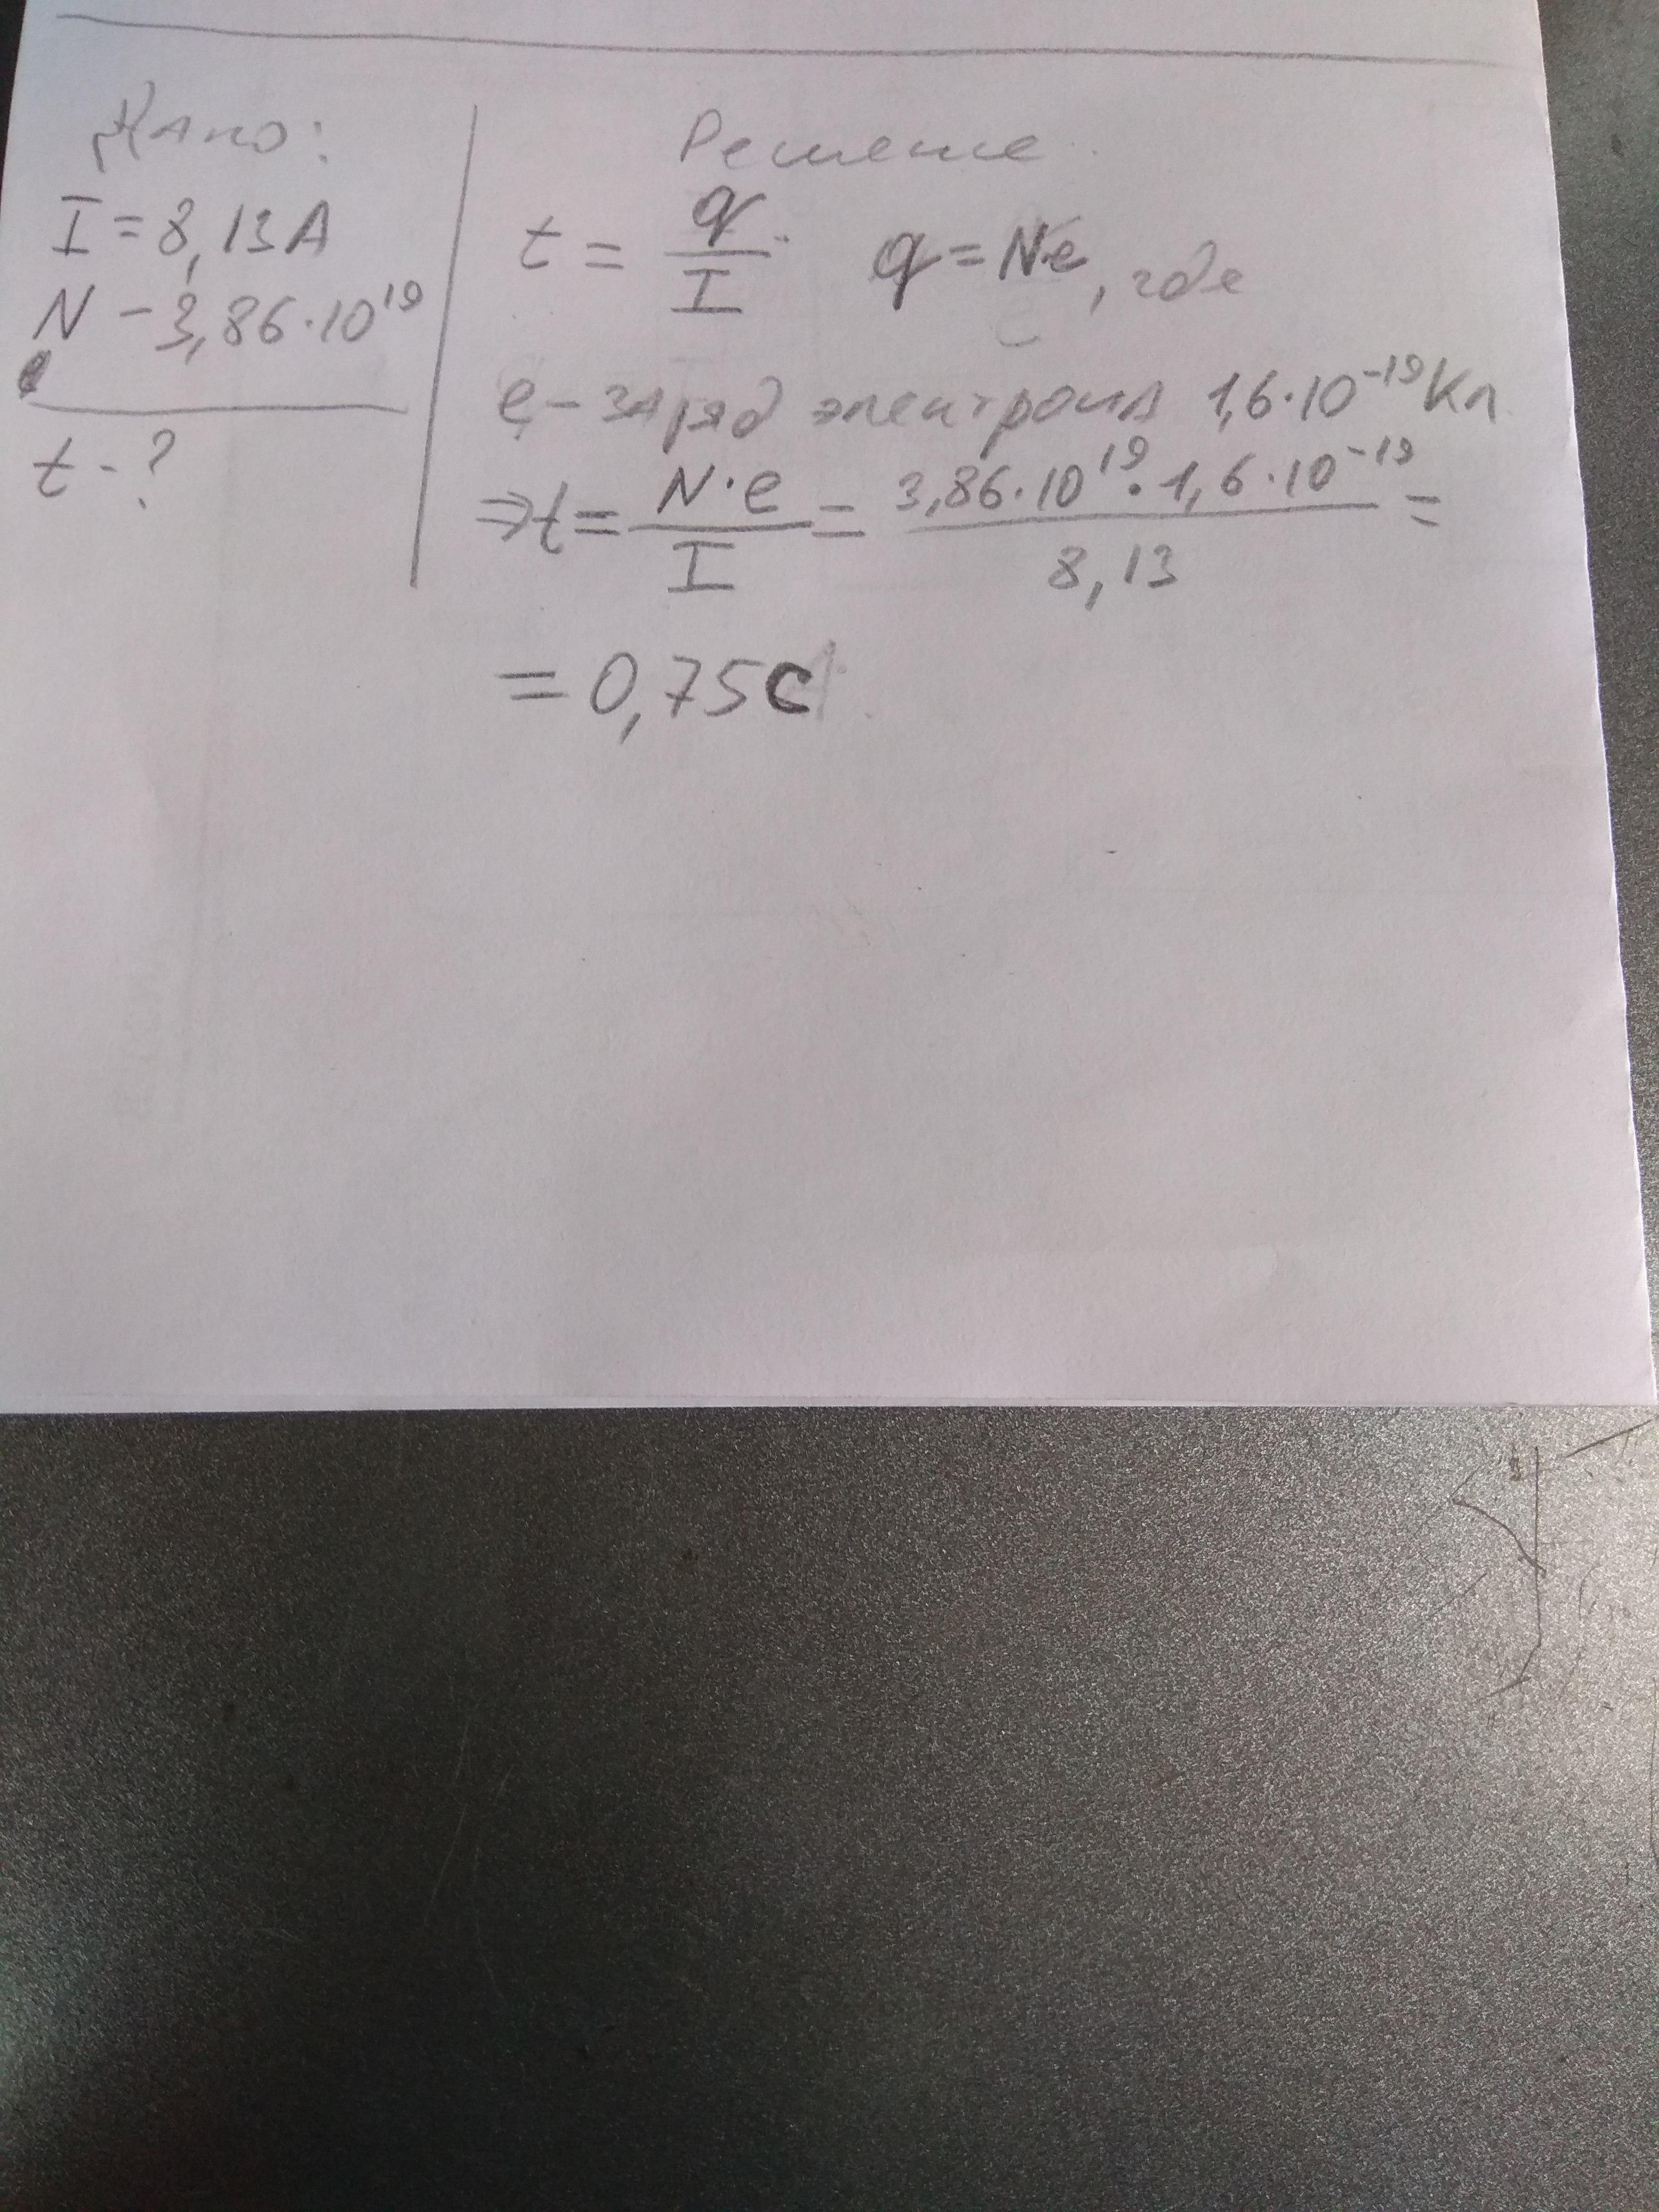 Дано:
I = 8,13 А
N - 3,86·10¹⁹
t - ?
Решение
t = q/I q = N·e, где
e - заряд электрона 1,6·10⁻¹⁹ Кл
⇒ t = N·e/I = 3,86·10¹⁹·1,6·10⁻¹⁹/8,13 =
= 0,75 с